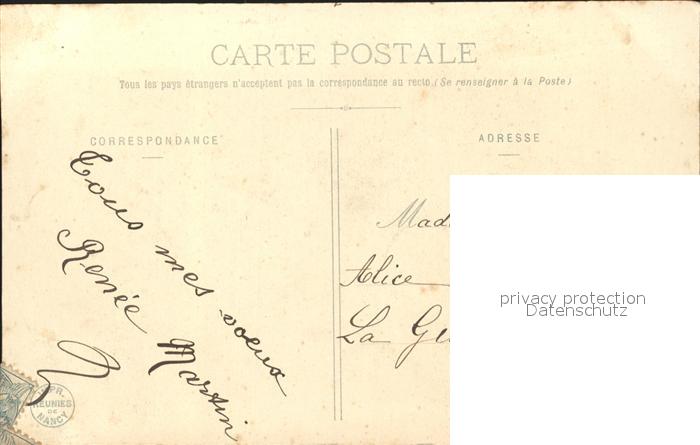 CARTE POSTALE
Tous les pays étrangers n'acceptent pas la correspondance au recto (Se renseigner à la Poste)
CORRESPONDANCE
ADRESSE
Tous mes voeux
Renée Martin
Mad
Alice
La Gu
privacy protection
Datenschutz
IMPR.
REUNIES
DE
NANCY